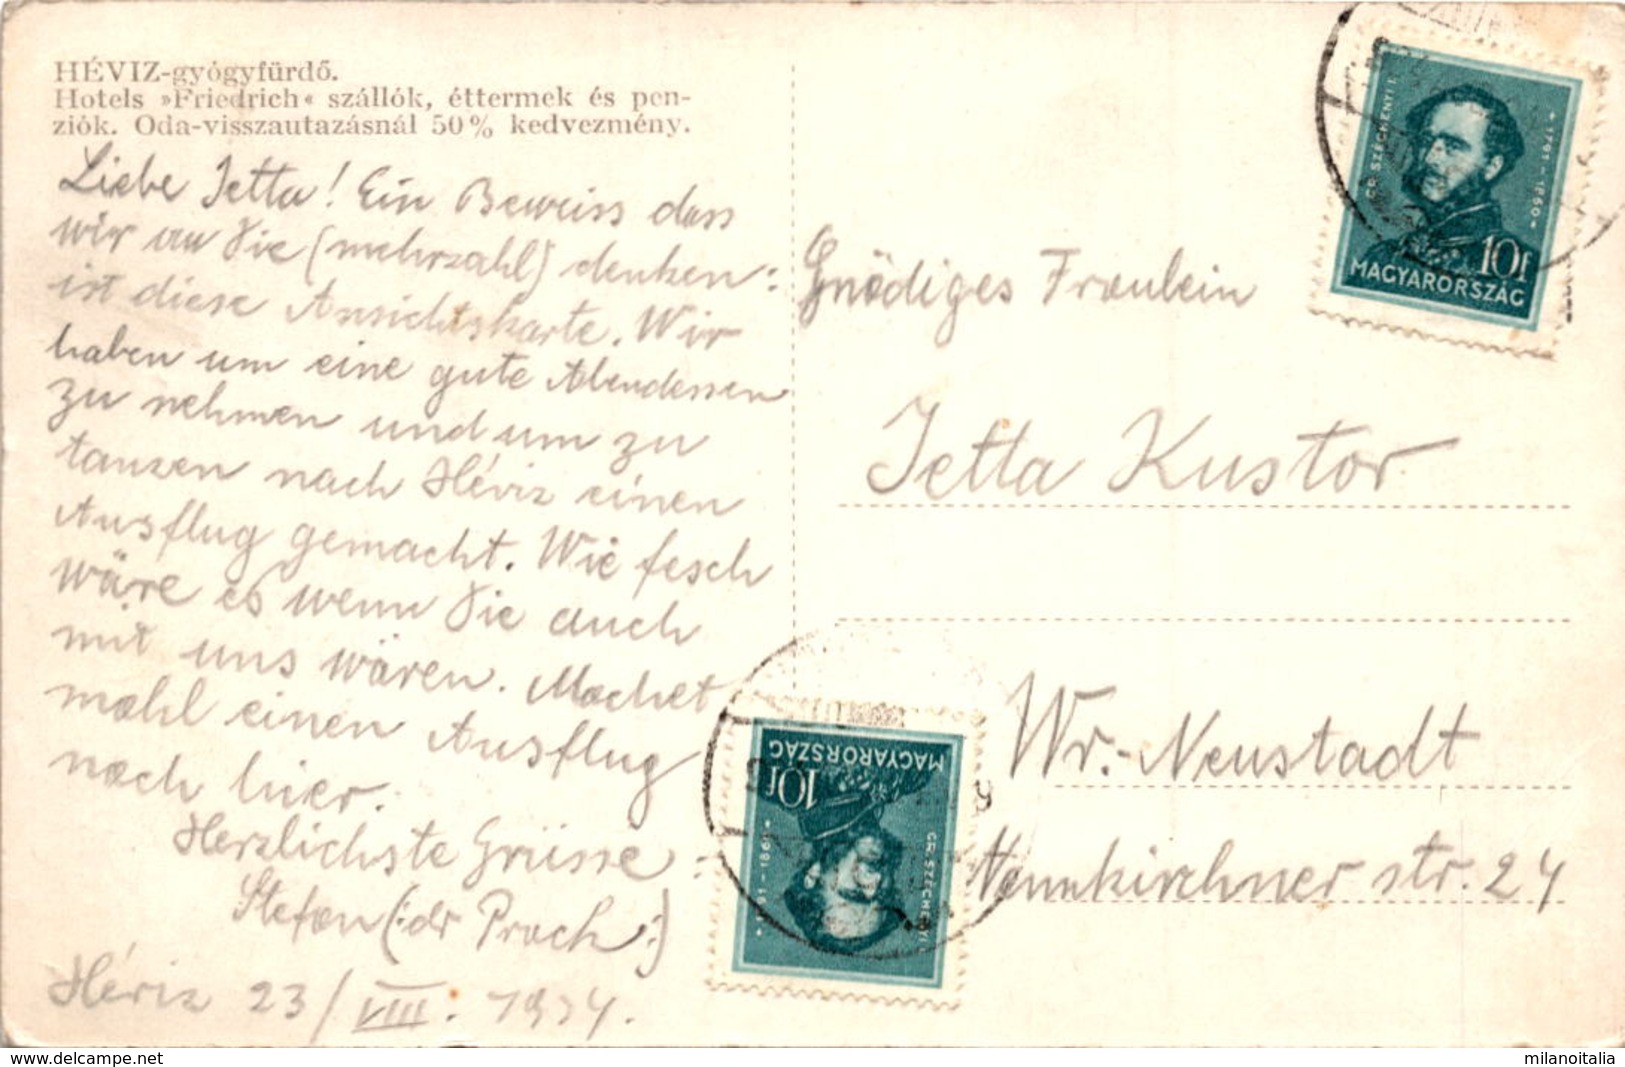 HÉVIZ-gyógyfürdő.
Hotels »Friedrich« szállók, éttermek és pen-
ziók. Oda-visszautazásnál 50% kedvezmény.
Liebe Jetta! Ein Beweiss dass
wir an Sie (mehrzahl) denken:
ist diese Ansichtskarte. Wir
haben um eine gute Abendessen
zu nehmen und um zu
tanzen nach Héviz einen
Ausflug gemacht. Wie fesch
wäre es wenn Sie auch
mit uns wären. Machet
mahl einen Ausflug
nach hier.
Herzlichste Grüsse:
Stefan (:dr Prach:)
Héviz 23/VIII. 1934.
Gnädiges Fraulein
Jetta Kustor
Wr.-Neustadt
Neunkirchner str. 24
GR. SZÉCHENYI I.
• 1791-1860 •
10f
MAGYARORSZÁG
MAGYARORSZÁG
10f
GR. SZÉCHENYI I.
• 1791-1860 •
delcampe.net
milanoitalia